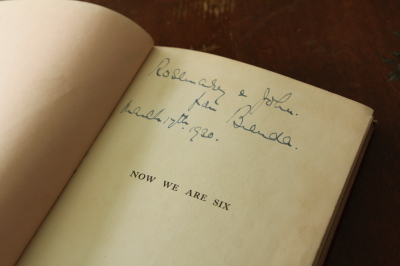 Rosemary & John.
from Brenda.
March 17th. 1930.
NOW WE ARE SIX